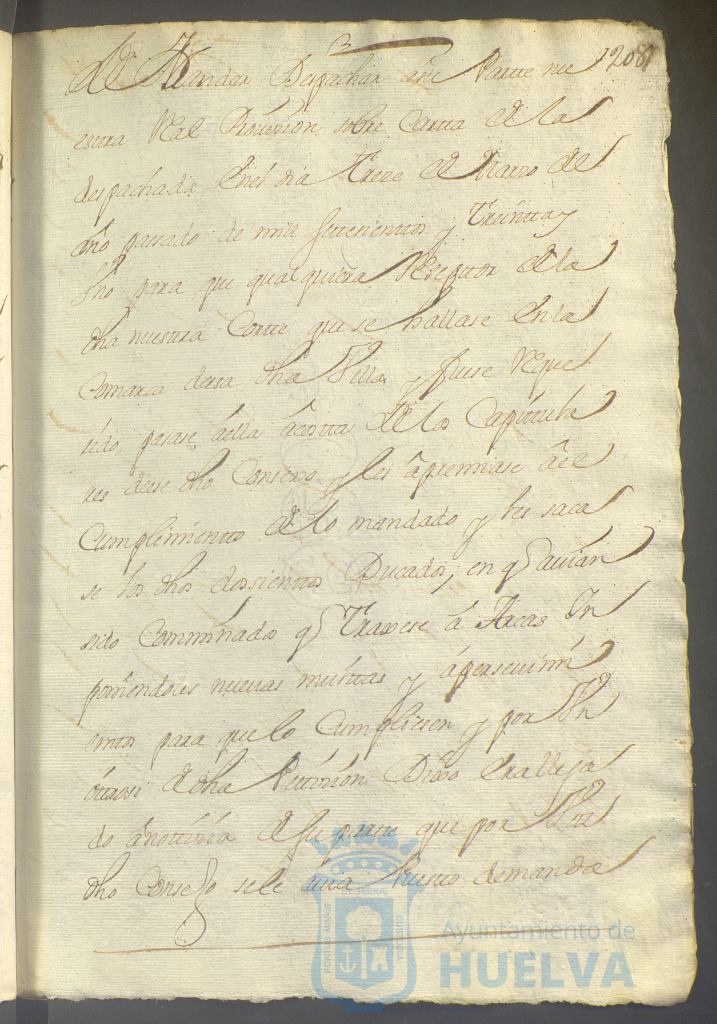 3
208
de Mandar Despachar a su Parte nu
estra Real Provision sobre Carta de la
despachada en el dia trece de Marzo del
año pasado de mill setecientos y Treinta y
Uno para que qualquiera Receptor de la
dha nuestra Corte que se hallase en la
Comarca desa dha Villa, y fuese Reque
rido pasase aella acosta de los Capitula
res dese dho Consexo y les apremiase àel
Cumplimiento de lo mandado y les saca
se los dhos dossientos Ducados, en q avian
sido Comminados q Traxese à Arcas Ym
poniendoles nuevas multas y àpersevimi
entos para que lo Cumpliesen y por Un
òtrosi de dha Peticion Dixo era llega
do ànoticia de su parte que por Vtro
dho Consejo se le avia Puesto demanda
Ayuntamiento de
HUELVA